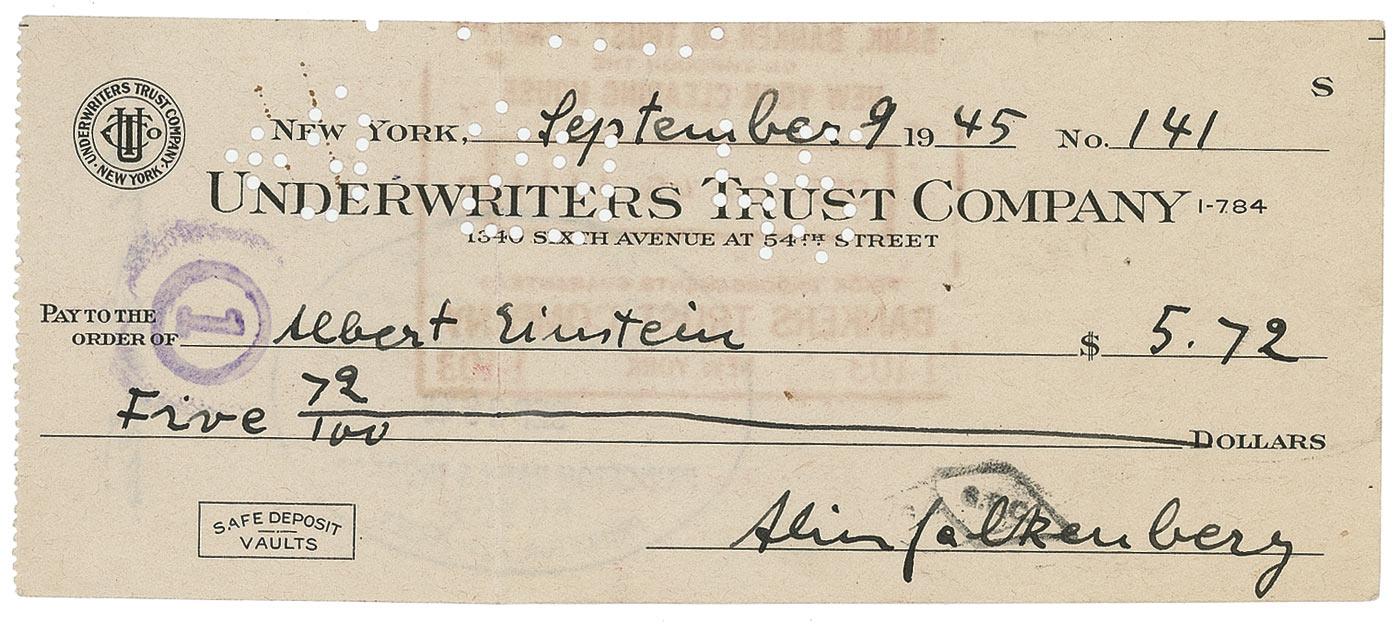 S
UNDERWRITERS TRUST COMPANY · NEW YORK ·
NEW YORK, September 9 1945 No. 141
UNDERWRITERS TRUST COMPANY 1-784
1340 SIXTH AVENUE AT 54TH STREET
PAY TO THE
ORDER OF Albert Einstein $ 5.72
1
Five 72/100 DOLLARS
SAFE DEPOSIT
VAULTS
Falkenberg